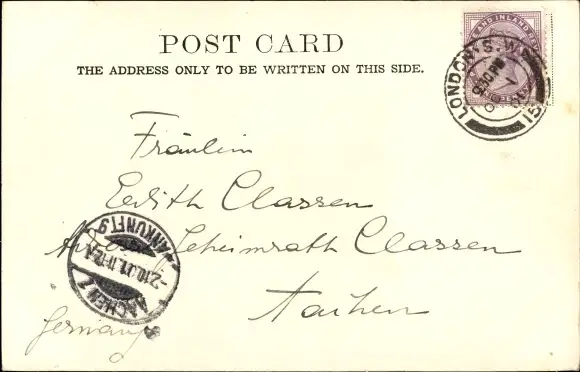 POST CARD
THE ADDRESS ONLY TO BE WRITTEN ON THIS SIDE.
LONDON. S.W. 15
Fräulein
Edith Classen
Geheimrath Classen
Aachen
Germany
AACHEN 1 ANKUNFT 9
-2.10.01.11-12V.